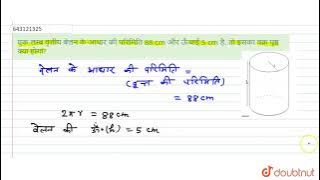 643121325
एक लम्ब वृत्तीय बेलन के आधार की परिमिति 88 cm और ऊँचाई 5 cm है, तो इसका वक्र पृष्ठ क्या होगा?
बेलन के आधार की परिमिति =
(वृत्त की परिमिति)
= 88 cm
2πr = 88 cm
बेलन की ऊँ॰ (h) = 5 cm
doubtnut